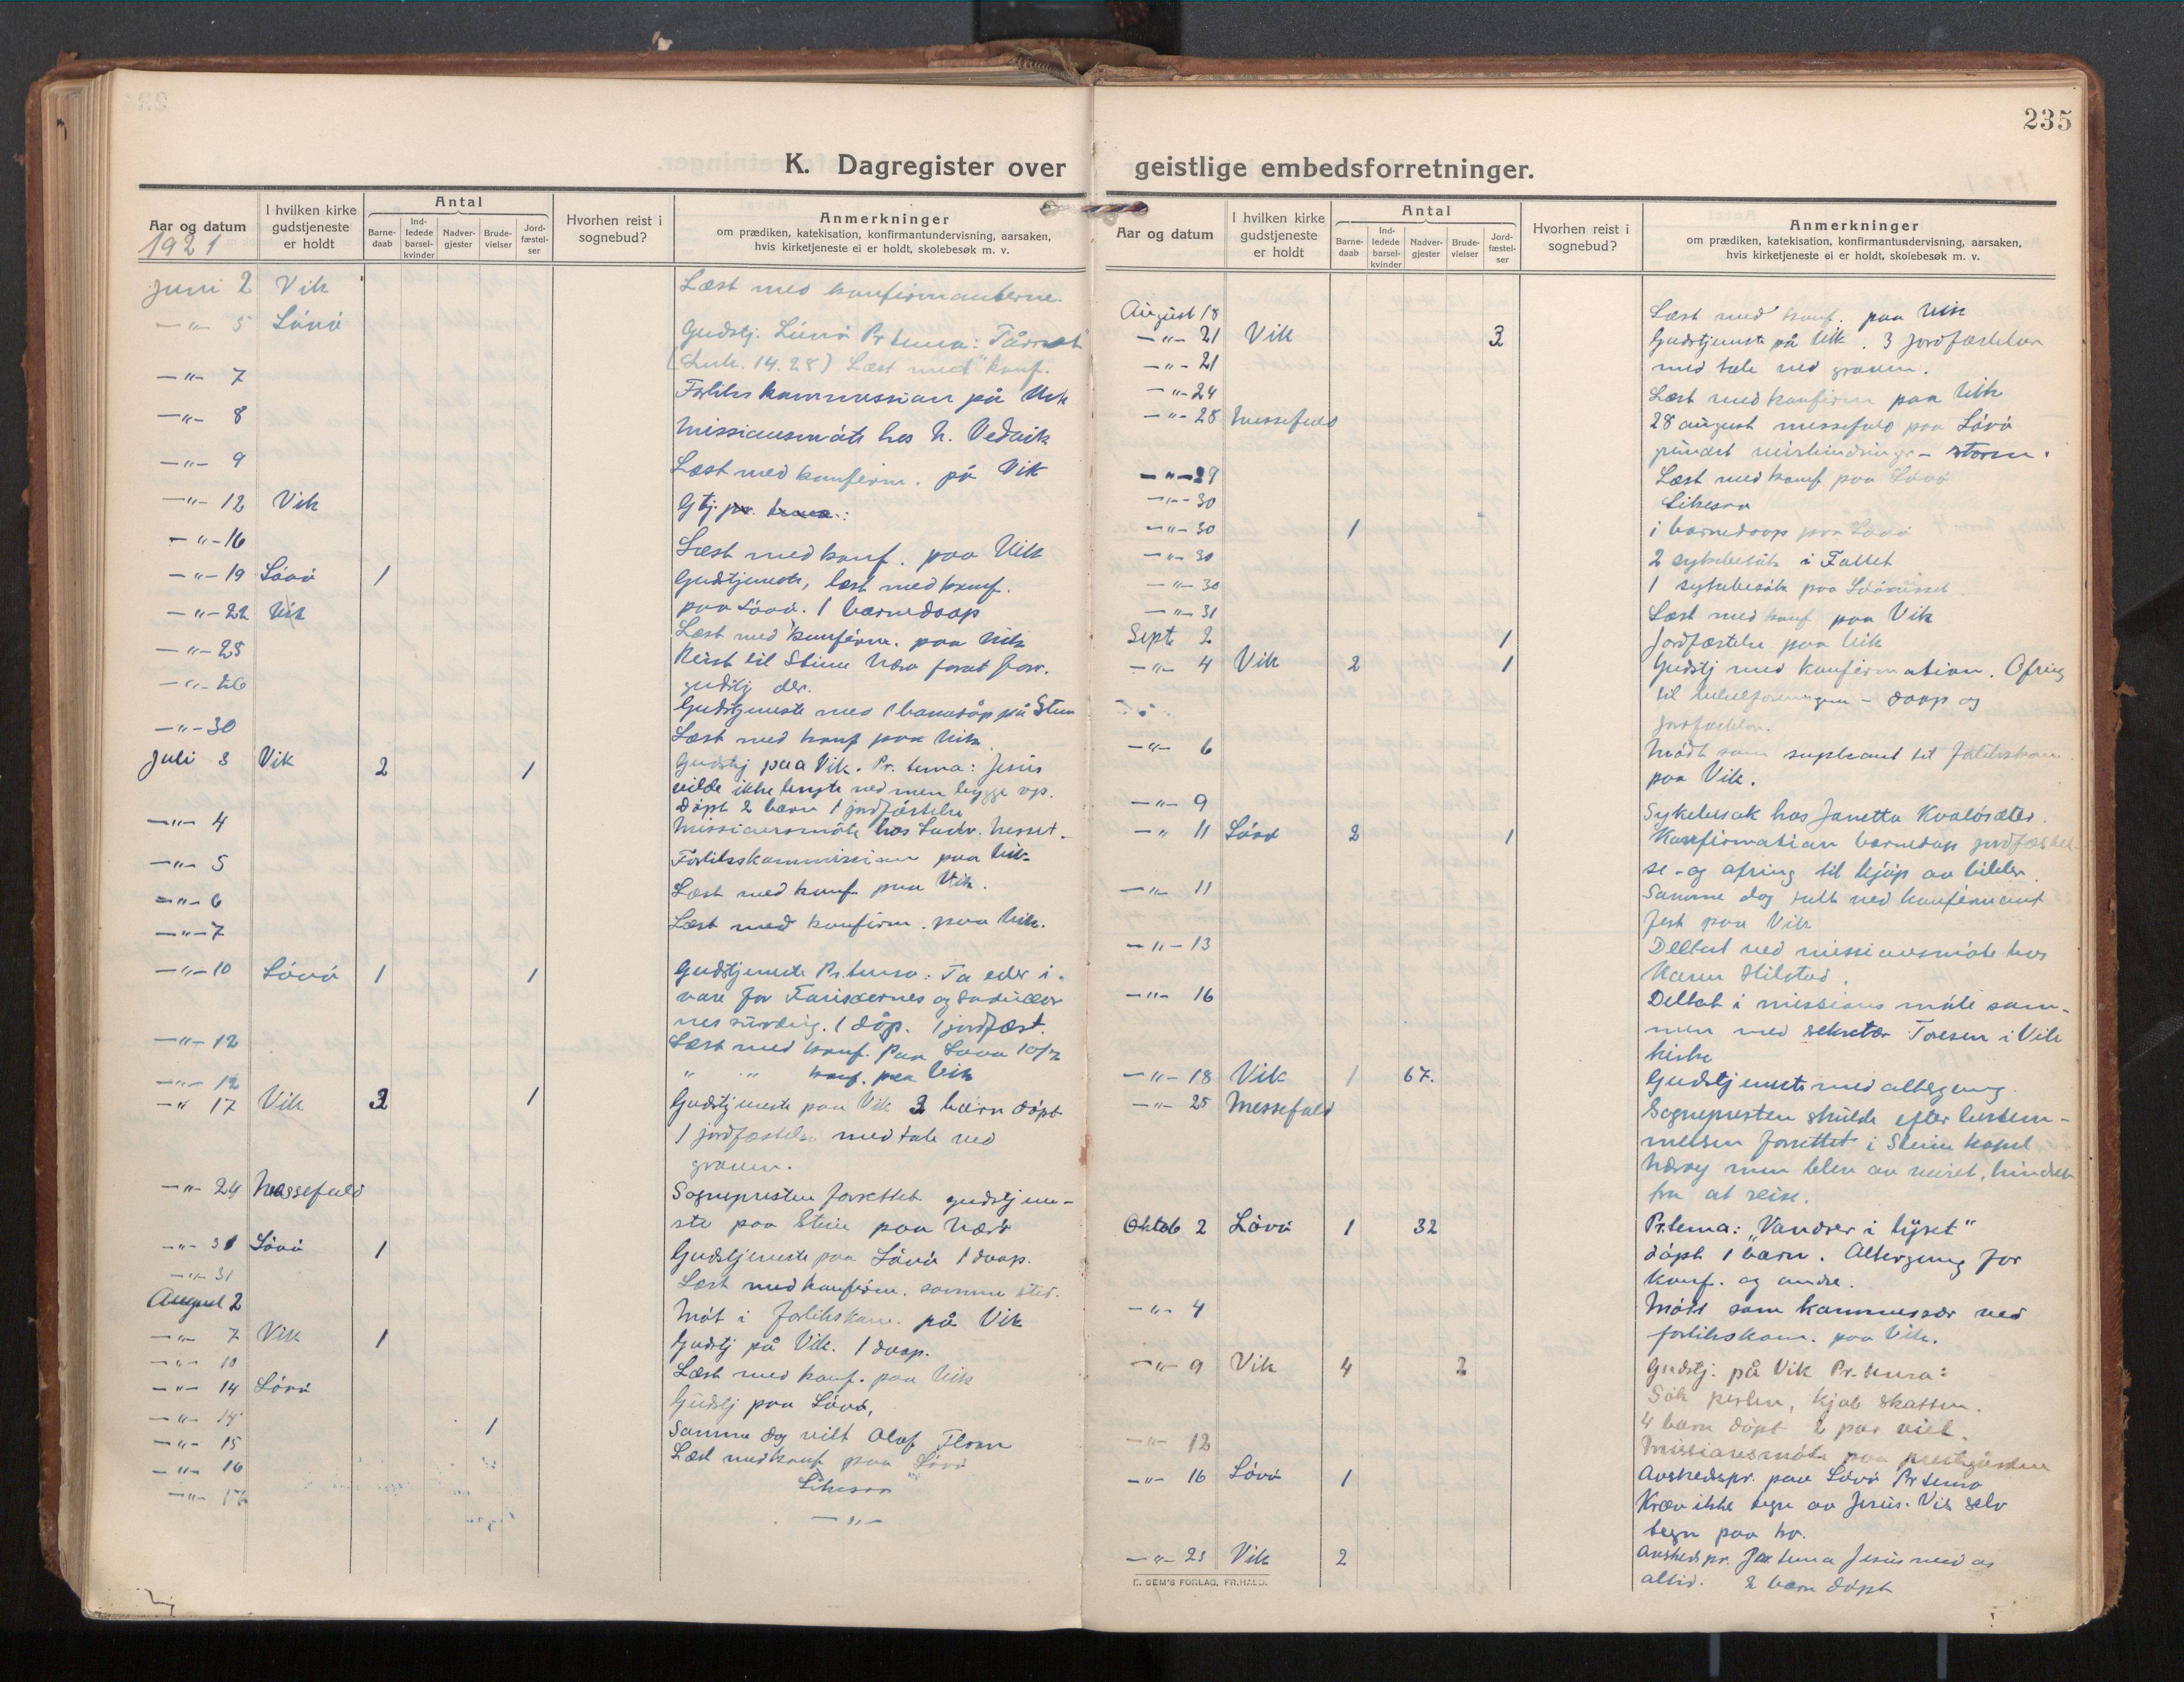 235
K. Dagregister over geistlige embedsforretninger.
Aar og datum
1921
I hvilken kirke gudstjeneste er holdt
Antal
Barnedaab
Indledede barselkvinder
Nadvergjester
Brudevielser
Jordfæstelser
Hvorhen reist i sognebud?
Anmerkninger
om prædiken, katekisation, konfirmantundervisning, aarsaken,
hvis kirketjeneste ei er holdt, skolebesøk m. v.
Juni 2 Vik Læst med konfirmanterne.
-"- 5 Lövö Gudstj. Lövö Pr tema: Tårnet
(Luk. 14.28) Læst med konf.
-"- 7 Forlikskommission på Vik
-"- 8 Missionsmöte hos N. Vedvik
-"- 9 Læst med konfirm. på Vik
-"- 12 Vik Gtj. pr. tema:
-"- 16 Læst med konf. paa Vik
-"- 19 Lövö 1 Gudstjeneste, læst med konf.
paa Lövö. 1 barnedaap
-"- 22 Vik Læst med konfirm. paa Vik
-"- 25 Reist til Steine Nærö forat forr.
gudstj der.
-"- 26 Gudstjeneste med 1 barnedåp på Stein
-"- 30 Læst med konf paa Vik
Juli 3 Vik 2 1 Gudstj paa Vik. Pr. tema: Jesus
vilde ikke bryte ned men bygge op.
Döpt 2 barn 1 jordfæstelse
-"- 4 Missionsmöte hos Ludv. Nesset
-"- 5 Forlikskommission paa Vik
-"- 6 Læst med konf paa Vik.
-"- 7 Læst med konfirm. paa Vik.
-"- 10 Lövö 1 1 Gudstjeneste Pr. tema: Ta eder i
vare for Farisæernes og Sadukæer
nes surdeig. 1 döp. 1 jordfæst.
-"- 12 Læst med konf. Paa Lövö 10/7
-"- 12 " " konf. paa Vik
-"- 17 Vik 3 1 Gudstjeneste paa Vik 3 barn döpt
1 jordfæstelse med tale ved
graven.
-"- 24 Messefald Sognepresten forrettet gudstjene-
ste paa Stein paa Nærö
-"- 31 Lövö 1 Gudstjeneste paa Lövö 1 daap.
-"- 31 Læst med konfirm. samme sted.
August 2 Möt i forlikskom. på Vik
-"- 7 Vik 1 Gudstj på Vik. 1 daap.
-"- 10 Læst med konf. paa Vik
-"- 14 Lövö Gudstj paa Lövö,
-"- 14 1 Samme dag viet Olaf Flosen
-"- 15 Læst med konf paa Lövö
-"- 16
-"- 17 -"-
Aar og datum
I hvilken kirke gudstjeneste er holdt
Antal
Barnedaab
Indledede barselkvinder
Nadvergjester
Brudevielser
Jordfæstelser
Hvorhen reist i sognebud?
Anmerkninger
om prædiken, katekisation, konfirmantundervisning, aarsaken,
hvis kirketjeneste ei er holdt, skolebesøk m. v.
August 18 Læst med konf. paa Vik
-"- 21 Vik 3 Gudstjeneste på Vik. 3 jordfæstelser
-"- 21 med tale ved graven.
-"- 24 Læst med konfirm paa Vik
-"- 28 Messefald 28 august messefald paa Lövö
grundet veirhindringer - storm.
-"- 29 Læst med konf paa Lövö
-"- 30
-"- 30 1 1 barnedaap paa Lövö
-"- 30 2 sykebesök i Fallet
-"- 30 1 sykebesök paa
-"- 31 Læst med konf paa Vik
Sept 2 1 Jordfæstelse paa Vik
-"- 4 Vik 2 1 Gudstj med konfirmation. Ofring
til - daap og
jordfæstelse.
-"- 6 Mödt som supleant til forlikskom
paa Vik.
-"- 9 Sykebesøk hos Janetta Kvalösæter.
-" 11 Lövö 2 1 Konfirmation barnedaap jordfæstel-
se - og ofring til kjöp av bibler
-"- 11 Samme dag talt ved konfirmant
fest paa Vik
-"- 13 Deltat ved missionsmöte hos
Karen Hilstad.
-"- 16 Deltat i missions möte sam-
men med sekretær Toresen i Vik
kirke
-"- 18 Vik 1 67. Gudstjeneste med altergang.
-"- 25 Messefald Sognepresten skulde efter bestem-
melsen forrettet i Steine kapel
Næröy men blev av veiret hindret
fra at reise.
Oktob 2 Lövö 1 32 Pr. tema: "Vandrer i lyset"
döpt 1 barn. Altergang for
konf. og andre.
-"- 4 Mödt som kommissær ved
forlikskom. paa Vik.
-"- 9 Vik 4 2 Gudstj. på Vik Pr. tema:
Søk perlen, kjøb skatten.
4 barn döpt 2 par viet.
-"- 12 Missionsmöte paa prestegården
-"- 16 Lövö 1 Avskedspr. paa Lövö Pr tema
Kræv ikke tegn av Jesus. Vis selv
tegn paa tro.
-"- 23 Vik 2 Avskedspr. Pr tema Jesus med os
altid. 2 barn döpt
E. SEM'S FORLAG, FR.HALD.